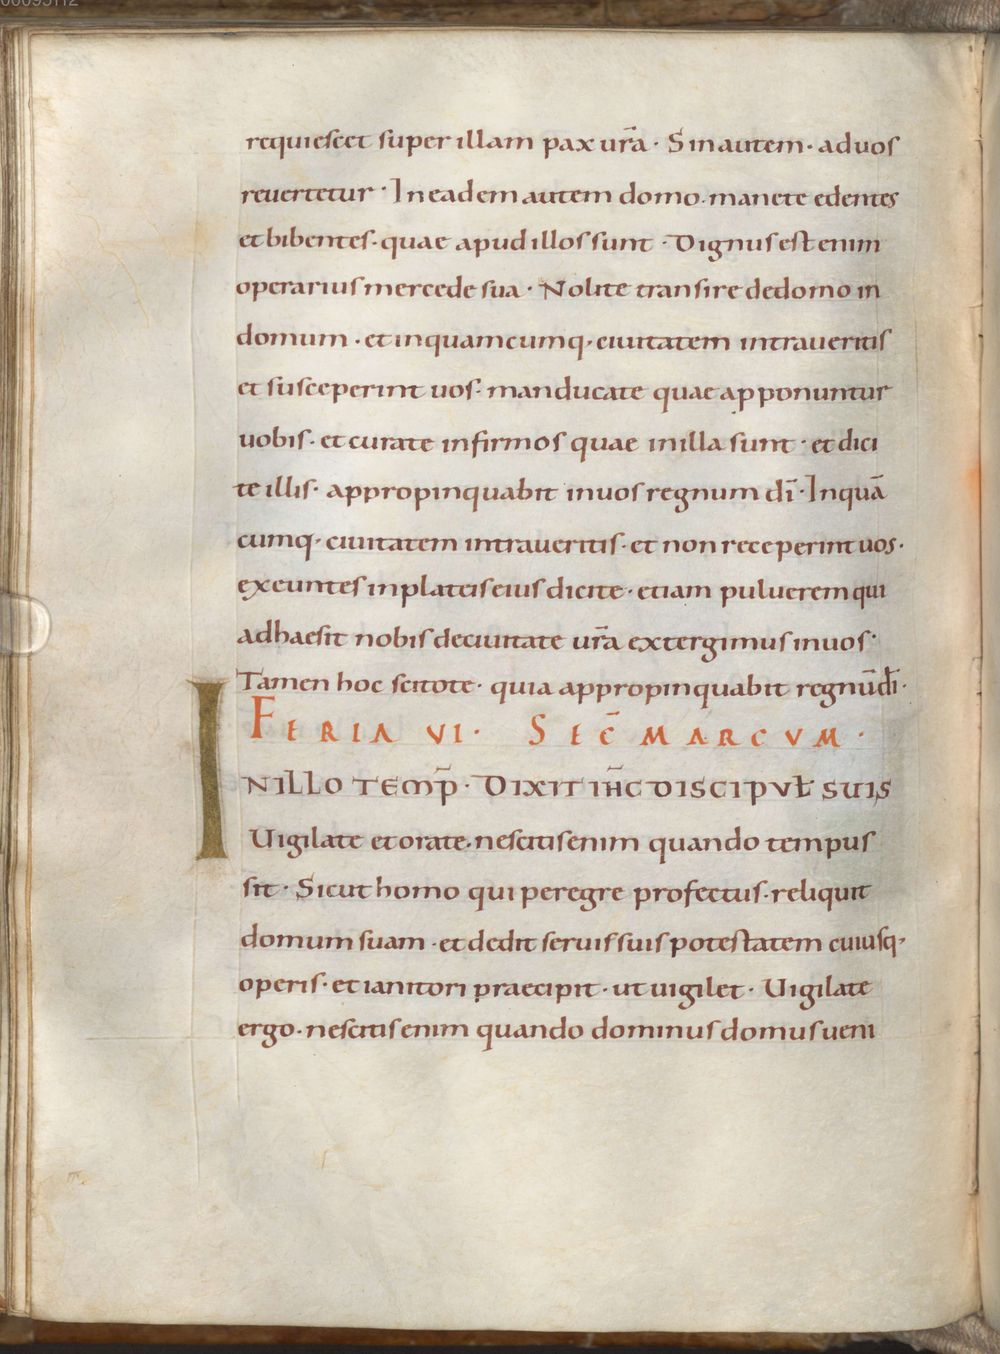 requiescet super illam pax ur̄a · Sin autem · ad uos
reuertetur · In eadem autem domo · manete edentes
et bibentes · quae apud illos sunt · Dignus est enim
operarius mercede sua · Nolite transire de domo in
domum · et in quamcumq· ciuitatem intraueritis
et susceperint uos · manducate quae apponuntur
uobis · et curate infirmos quae in illa sunt · et dici
te illis · appropinquabit in uos regnum dī · In quā
cumq· ciuitatem intraueritis · et non receperint uos ·
exeuntes in plateis eius dicite · etiam puluerem qui
adhaesit nobis de ciuitate ur̄a extergimus in uos ·
Tamen hoc scitote · quia appropinquabit regnū dī ·
FERIA VI · SEC̄ MARCVM ·
INILLO TEMP̄ · DIXIT IH̄C DISCIPVĿ SUIS
Uigilate et orate · nescitis enim quando tempus
sit · Sicut homo qui peregre profectus · reliquit
domum suam · et dedit seruis suis potestatem cuiusq·
operis · et ianitori praecipit · ut uigilet · Uigilate
ergo · nescitis enim quando dominus domus ueni